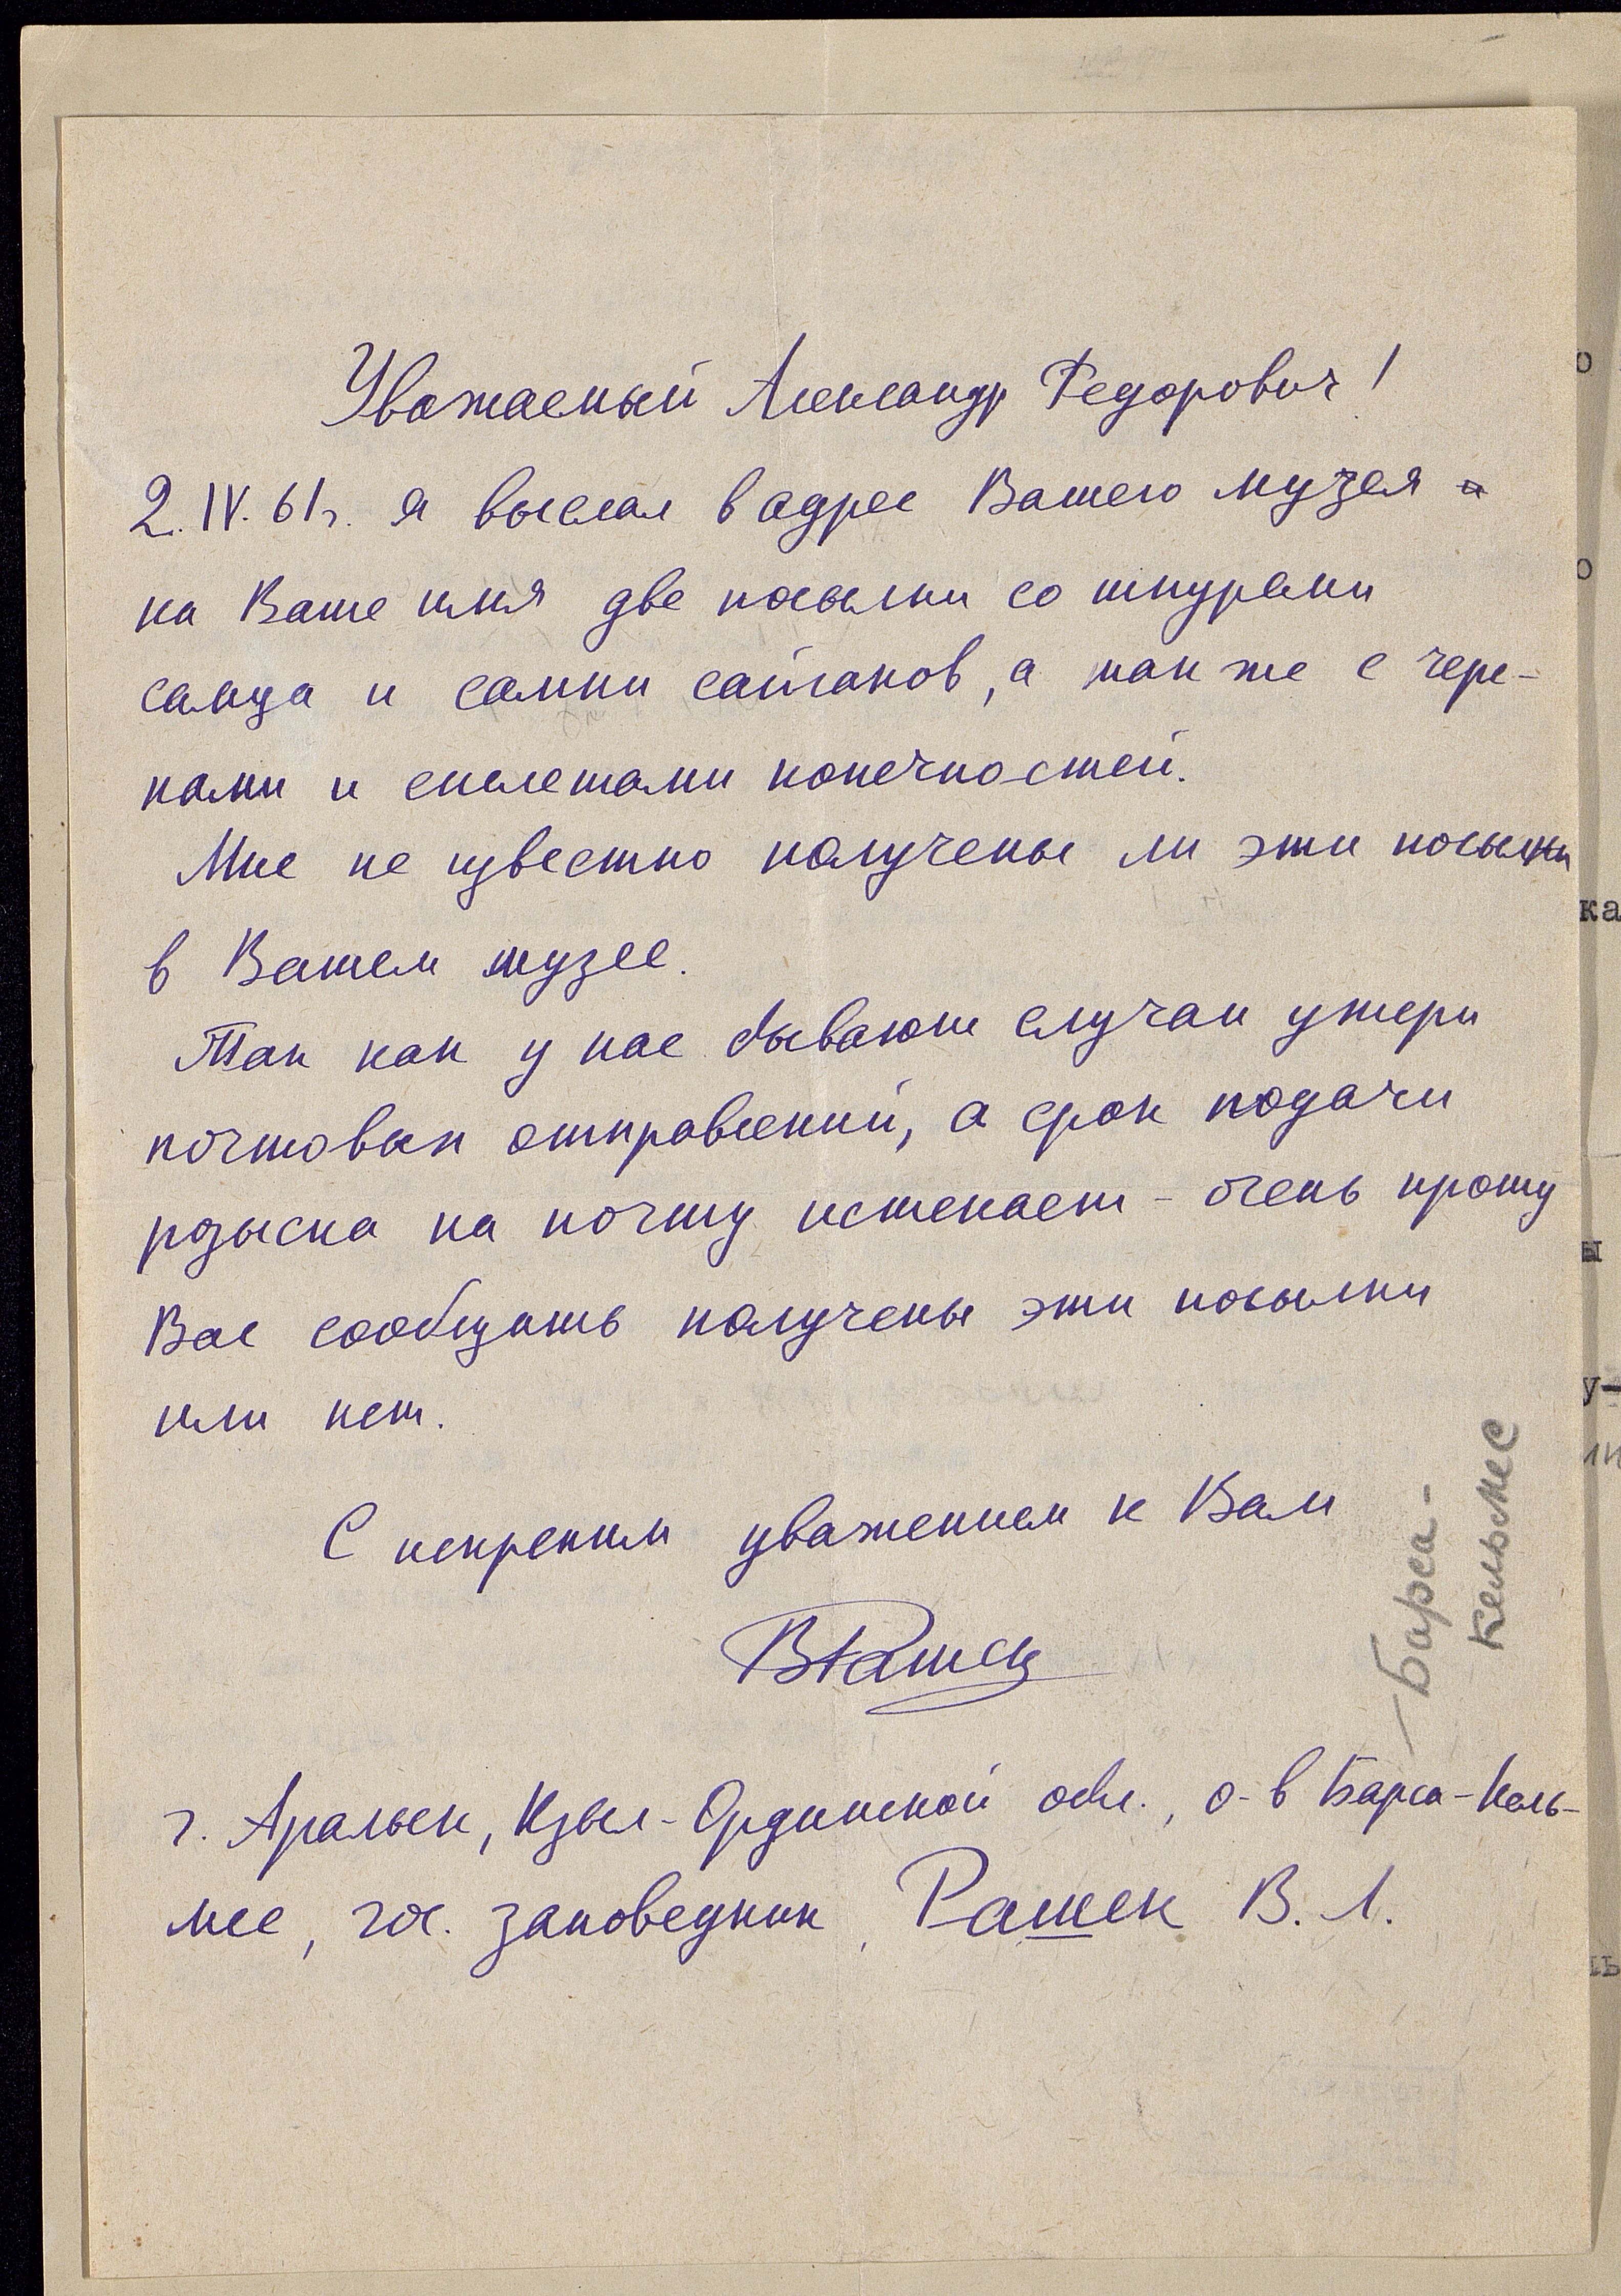 Уважаемый Александр Федорович!
2.IV.61г. я выслал в адрес Вашего музея и
на Ваше имя две посылки со шкурами
самца и самки сайгаков, а так же с чере-
пами и скелетами конечностей.
Мне не известно получены ли эти посылки
в Вашем музее.
Так как у нас бывают случаи утери
почтовых отправлений, а срок подачи
розыска на почту истекает - очень прошу
Вас сообщить получены эти посылки
или нет.
С искреним уважением к Вам
ВРашек
Барса-
кельмес
г. Аральск, Кзыл-Ординской обл., о-в Барса-Кель-
мес, гос. заповедник, Рашек В. Л.
о
о
ка
ы
у-
ль